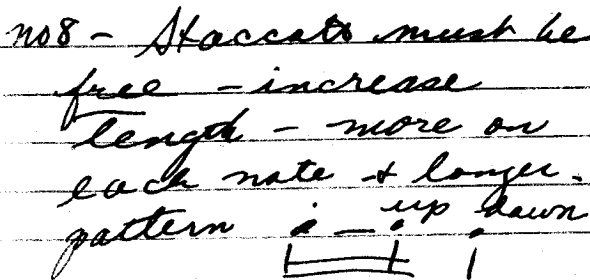 no8 - Staccato must be
free - increase
length - more on
each note & longer.
pattern up down